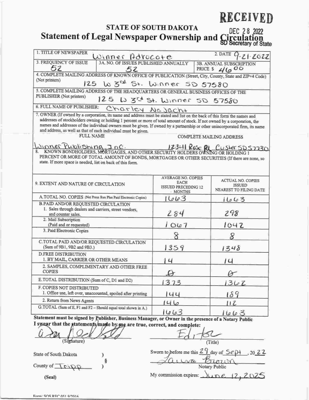 RECEIVED
DEC 28 2022
SD Secretary of State
STATE OF SOUTH DAKOTA
Statement of Legal Newspaper Ownership and Circulation
1. TITLE OF NEWSPAPER
Winner Advocate
2. DATE 9-21-2022
3. FREQUENCY OF ISSUE
52
3A. NO. OF ISSUES PUBLISHED ANNUALLY
52
3B. ANNUAL SUBSCRIPTION
PRICE $ 46.00
4. COMPLETE MAILING ADDRESS OF KNOWN OFFICE OF PUBLICATION (Street, City, County, State and ZIP+4 Code)
(Not printers)
125 W 3rd St. Winner SD 57580
5. COMPLETE MAILING ADDRESS OF THE HEADQUARTERS OR GENERAL BUSINESS OFFICES OF THE
PUBLISHER (Not printers)
125 W 3rd St. Winner SD 57580
6. FULL NAME OF PUBLISHER:
Charley Najacht
7. OWNER (If owned by a corporation, its name and address must be stated and list on the back of this form the names and
addresses of stockholders owning or holding 1 percent or more of total amount of stock. If not owned by a corporation, the
names and addresses of the individual owners must be given. If owned by a partnership or other unincorporated firm, its name
and address, as well as that of each individual must be given.
FULL NAME
COMPLETE MAILING ADDRESS
Winner Publishing Inc.
Custer SD 57730
8. KNOWN BONDHOLDERS, MORTGAGES, AND OTHER SECURITY HOLDERS OWNING OR HOLDING 1
PERCENT OR MORE OF TOTAL AMOUNT OF BONDS, MORTGAGES OR OTHER SECURITIES (If there are none, so
state. If more space is needed, list on back of this form.
9. EXTENT AND NATURE OF CIRCULATION
AVERAGE NO. COPIES
EACH
ISSUED PRECEDING 12
MONTHS
ACTUAL NO. COPIES
ISSUED
NEAREST TO FILING DATE
A. TOTAL NO. COPIES (Net Press Run Plus Paid Electronic Copies)
1663
1663
B. PAID AND/OR REQUESTED CIRCULATION
1. Sales through dealers and carriers, street vendors,
and counter sales.
284
298
2. Mail Subscription
(Paid and or requested)
1067
1042
3. Paid Electronic Copies
8
8
C. TOTAL PAID AND/OR REQUESTED CIRCULATION
(Sum of 9B1, 9B2 and 9B3.)
1359
1348
D. FREE DISTRIBUTION
1. BY MAIL, CARRIER OR OTHER MEANS
14
14
2. SAMPLES, COMPLIMENTARY AND OTHER FREE
COPIES
0
0
E. TOTAL DISTRIBUTION (Sum of C, D1 and D2)
1373
1362
F. COPIES NOT DISTRIBUTED
1. Office use, left over, unaccounted, spoiled after printing
144
189
2. Return from News Agents
146
112
G. TOTAL (Sum of E, F1 and F2 – Should equal total shown in A.)
1663
1663
Statement must be signed by Publisher, Business Manager, or Owner in the presence of a Notary Public
I swear that the statements made by me are true, correct, and complete:
Editor
(Signature)
(Title)
State of South Dakota )
§
County of Tripp )
Sworn to before me this 29 day of Sept, 2022
Laura Brown
Notary Public
(Seal)
My commission expires: June 12, 2025